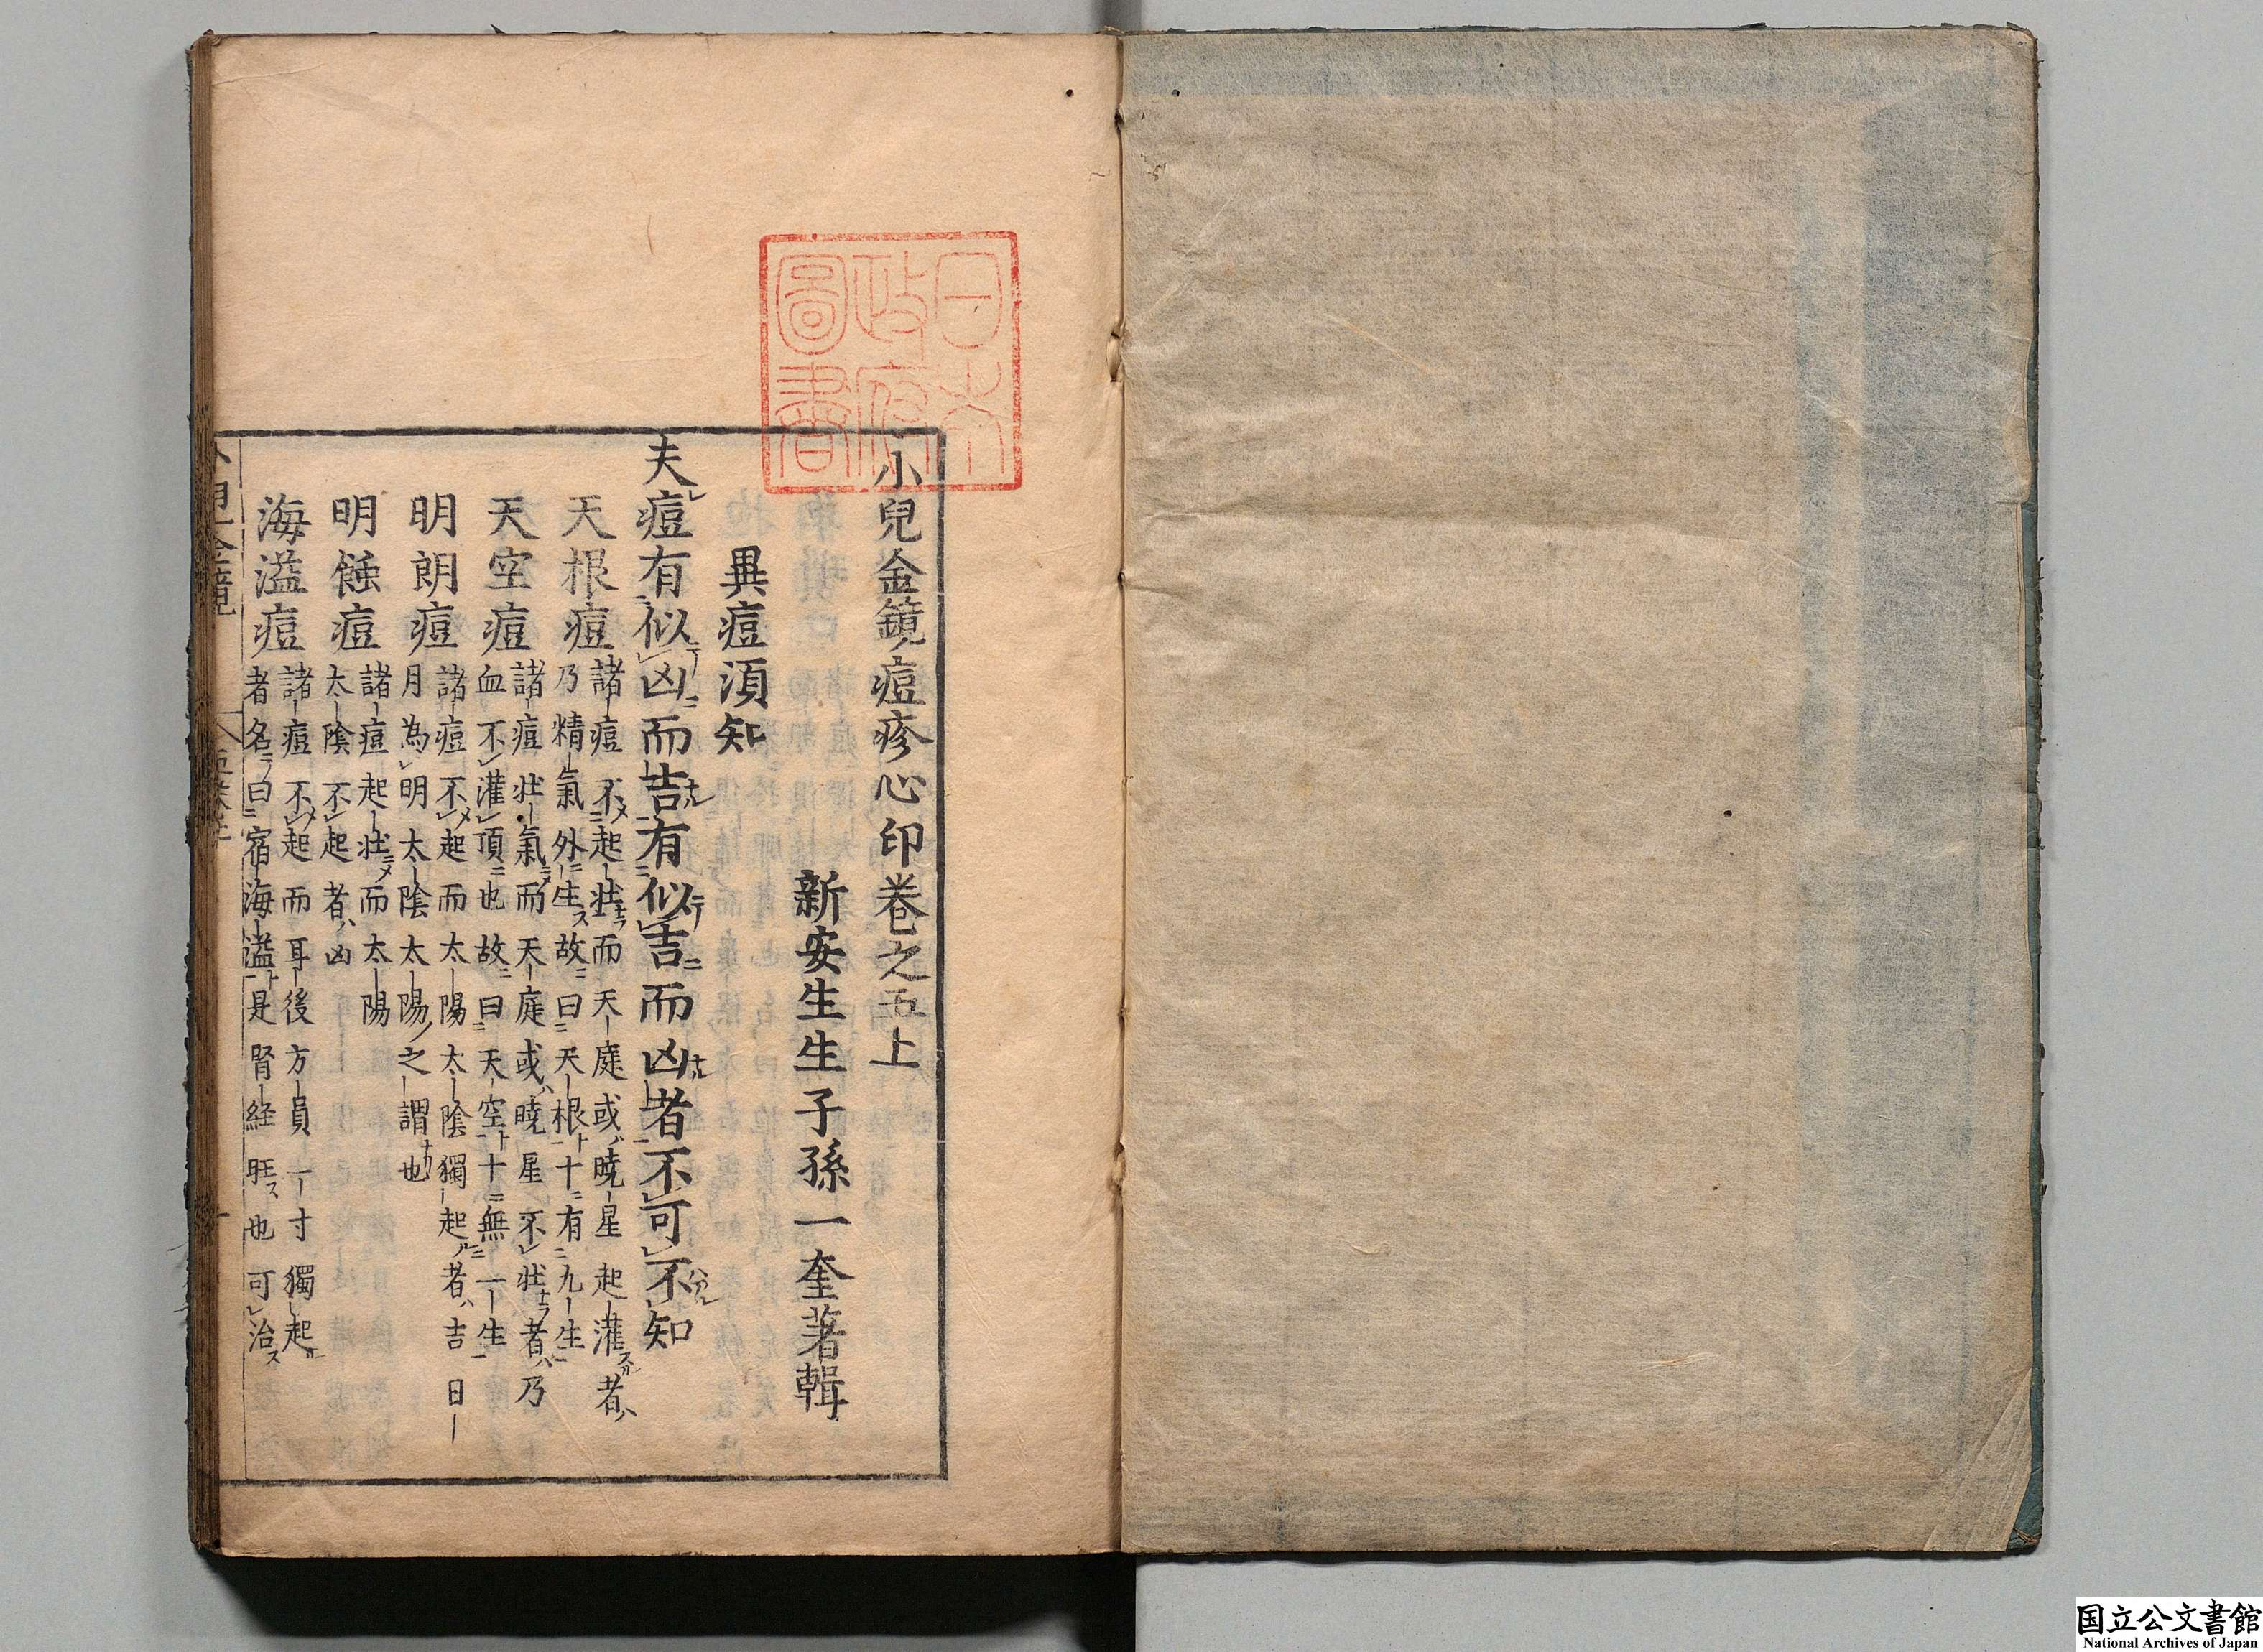 小兒金鏡痘疹心印卷之五上
新安生生子孫一奎著輯
異痘湏知
夫痘有似凶而吉有似吉而凶者不可不知
天根痘
諸痘不起壮而天庭或暁星起灌者
乃精氣外生故曰天根十有九生
天空痘
諸痘壮氣而天庭或暁星不壮者乃
血不灌頂也故曰天空十無一生
明朗痘
諸痘不起而太陽太陰獨起者吉日
月為明太陰太陽之謂也
明蝕痘
諸痘起壮而太陽
太陰不起者凶
海溢痘
諸痘不起而耳後方員一寸獨起
者名曰宿海溢是腎経旺也可治
日本
政府
圖書
国立公文書館
National Archives of Japan